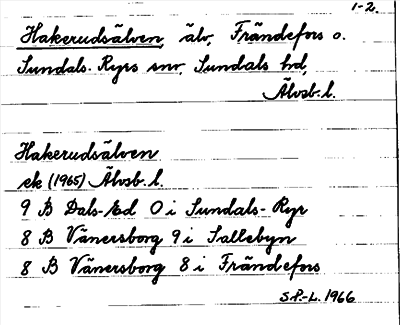 1-2.
Hakerudsälven, älv, Frändefors o.
Sundals-Ryrs snr, Sundals hd,
Älvsb. l.
Hakerudsälven
ek (1965) Älvsb. l.
9 B Dals-Ed 0 i Sundals-Ryr
8 B Vänersborg 9 i Sallebyn
8 B Vänersborg 8 i Frändefors
S.P.-L. 1966